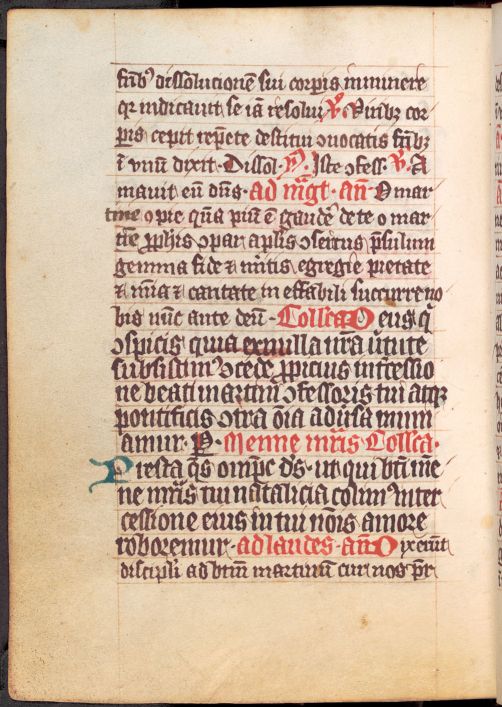 fr̄ib⁹ dissolucionē sui corꝑis iminuere
qꝛ indicauit se iā resolui ℟ Virib⁊ cor
ꝑis cepit repēte destitui ꝯuocatis fr̄ib⁊
ī vnū dixit · Dissol · ℣ · Iste ꝯfess · ℣ · A
mauit eū dūs · ad mͣgt · añ · O mar
tine o pie qͣm piū ē gaudē de te o mar
tīe ꝓphīs ꝯpar apl̄is ꝯsertus p̄sulum
gemma fide ⁊ mītis egregie pietate
⁊ mīa ⁊ caritate in effabili succurre no
bis nūc ante deū · Collc̄a Deus q̄
ꝯspicis quia ex nulla nr̄a v̄tute
subsistim⁹ ꝯcede ꝓpicius int̄cessio
ne beati martini ꝯfessoris tui atqꝫ
pontificis ꝯtra ōia adūsa muni
amur · ꝑ · Menne mr̄is Collc̄a ·
Presta q̄s omp̄c d̄s · ut qui btī me
ne mr̄is tui natalicia colim⁹ inter
cessione eius in tui nōis amore
roboremur · ad laudes · añ Dixerūt
discipli ad btm̄ martinū cur nos p̄r